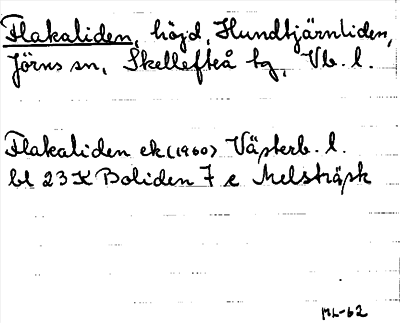 Flakaliden, höjd, Hundtjärnliden,
Jörns sn, Skellefteå tg, Vb. l.
Flakaliden ek (1960) Västerb. l.
bl 23K Boliden 7 e Melsträsk
ML-62